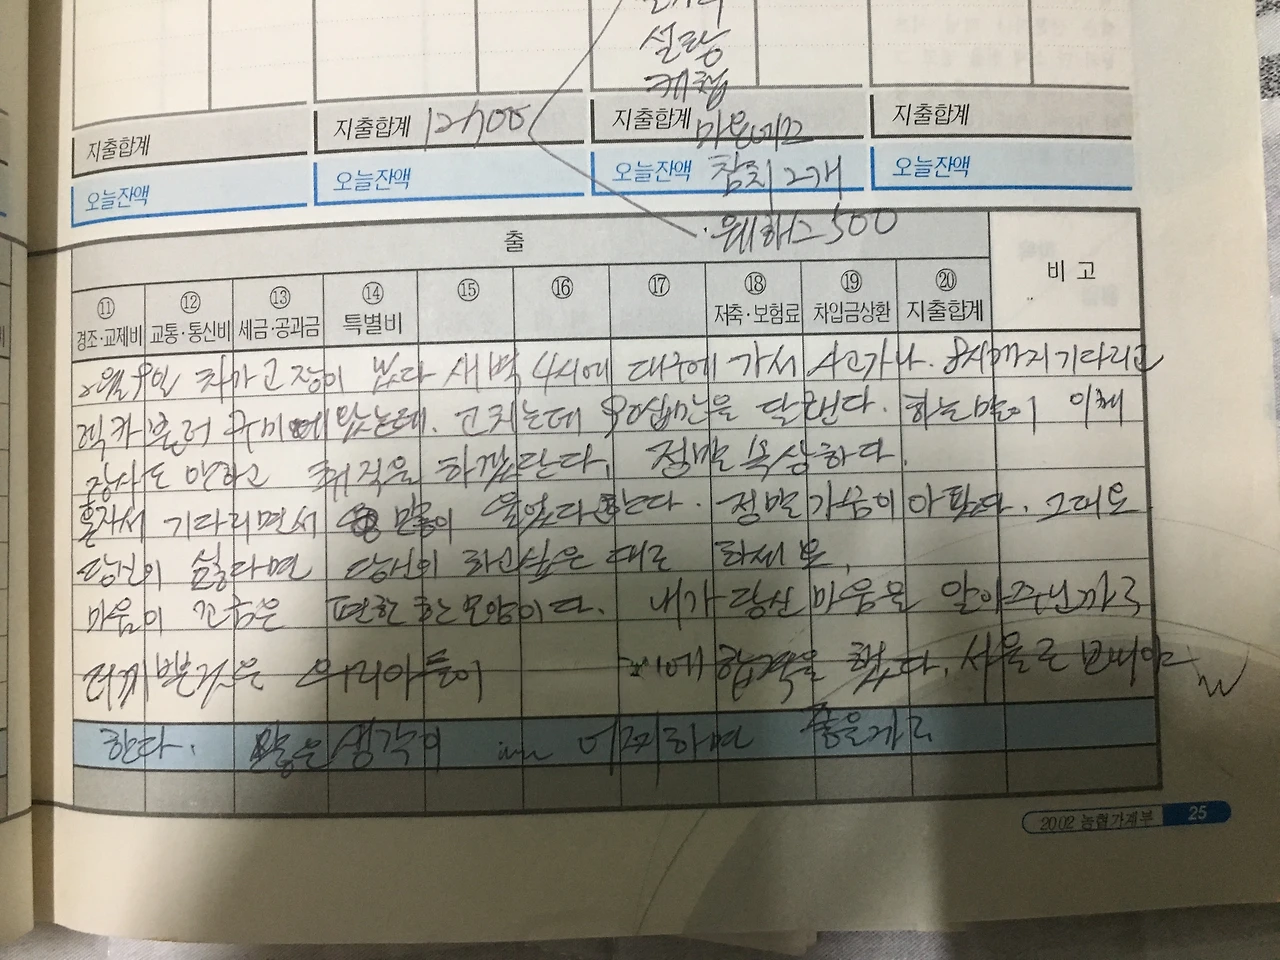 설탕
케찹
지출합계
지출합계 12700
지출합계 마요네즈
지출합계
오늘잔액
오늘잔액
오늘잔액 참치 2개
오늘잔액
웨하스 500
출
비 고
⑪ ⑫ ⑬ ⑭ ⑮ ⑯ ⑰ ⑱ ⑲ ⑳
경조·교제비 교통·통신비 세금·공과금 특별비 저축·보험료 차입금상환 지출합계
2월 9일 차가 고장이 났다 새벽 4시에 대구에 가서 사고가 나. 8시까지 기다리고
렉카 불러 구미에 왔는데. 고치는데 90십만을 달랜다. 하는말이 이체
장사도 안하고 취직을 하겠단다. 정말 속상하다.
혼자서 기다리면서 많이 울었다한다. 정말 가슴이 아팠다. 그대요
당신이 싫다면 당신이 하고싶은 대로 하세요.
마음이 조금은 편한 모양이다. 내가 당신 마음을 알아주니까
더기쁜것은 우리아들이 에 합격을 했다. 서울로 보내야
한다. 많은 생각이 어찌하면 좋을까
2002 농협가계부 25